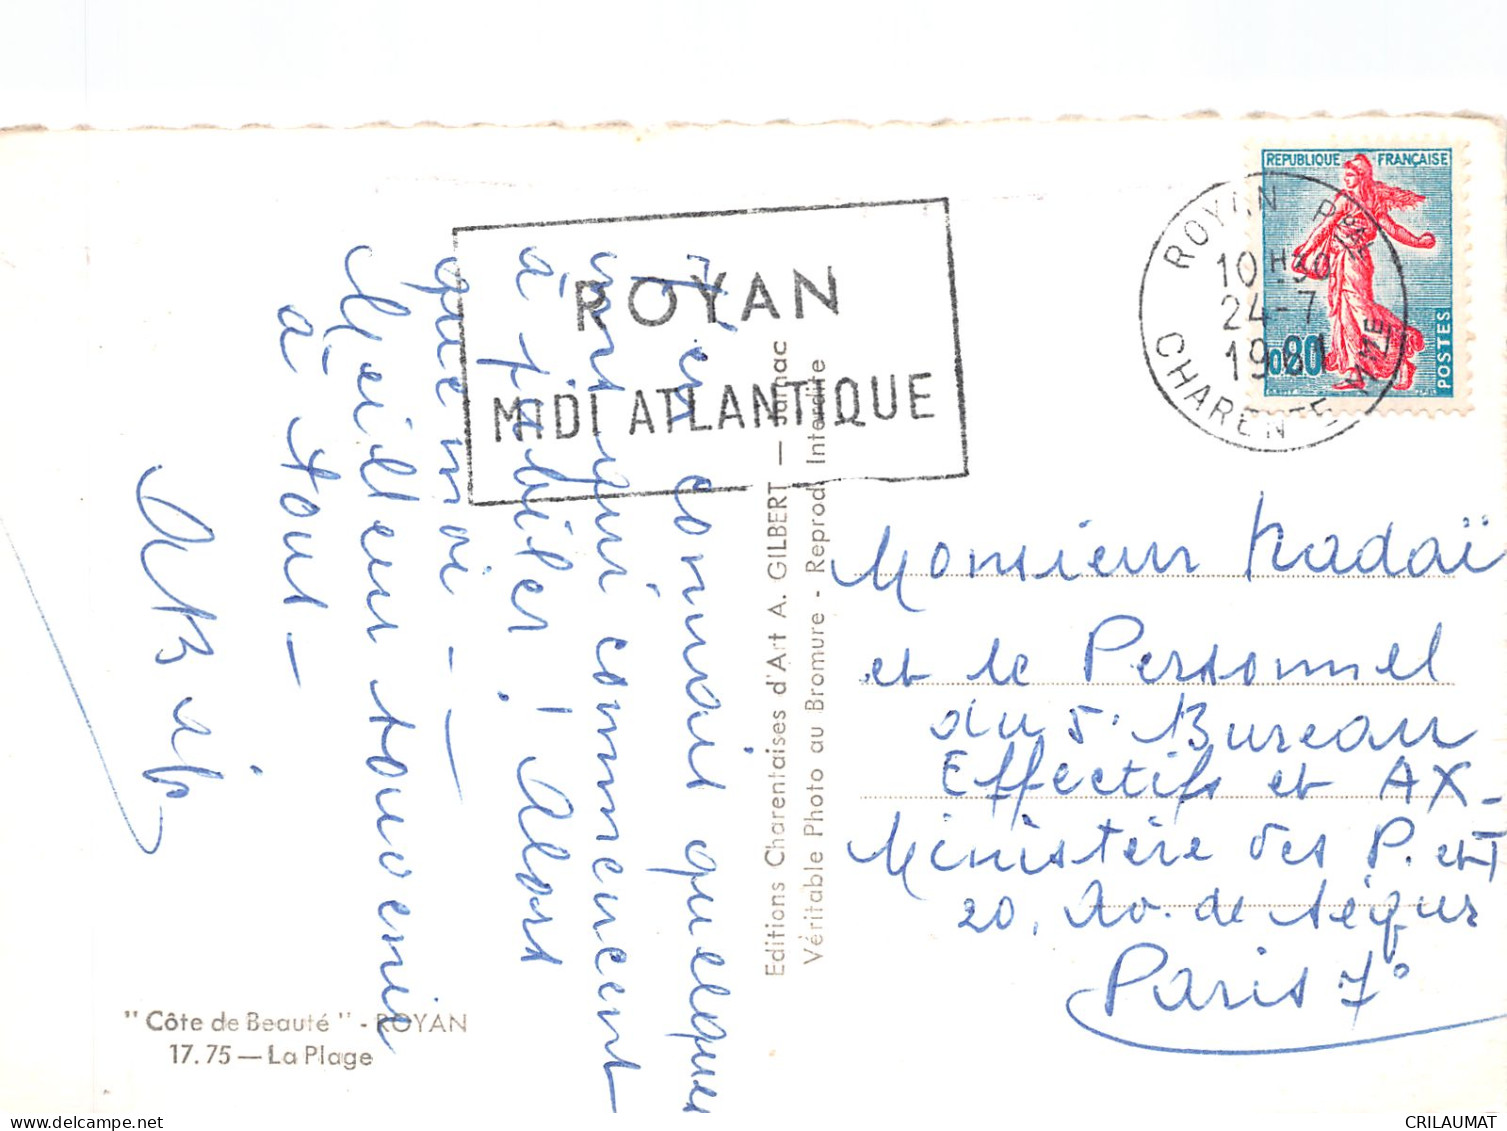 REPUBLIQUE FRANÇAISE
0,20
POSTES
ROYAN PAL
10 H 30
24-7
1961
CHARENTE MME
ROYAN
MIDI ATLANTIQUE
J'en connais quelques
uns qui commencent
à jubiler ! Alors
que moi - -
Meilleur souvenir
à tous -
Monsieur Nadaï
et le Personnel
du 5° Bureau
Effectifs et AX-
Ministère des P. et T
20, Av. de Ségur
Paris 7°
Editions Charentaises d'Art A. GILBERT — Jarnac
Véritable Photo au Bromure - Reprod. Interdite
"Côte de Beauté" - ROYAN
17.75 — La Plage
delcampe.net
CRILAUMAT